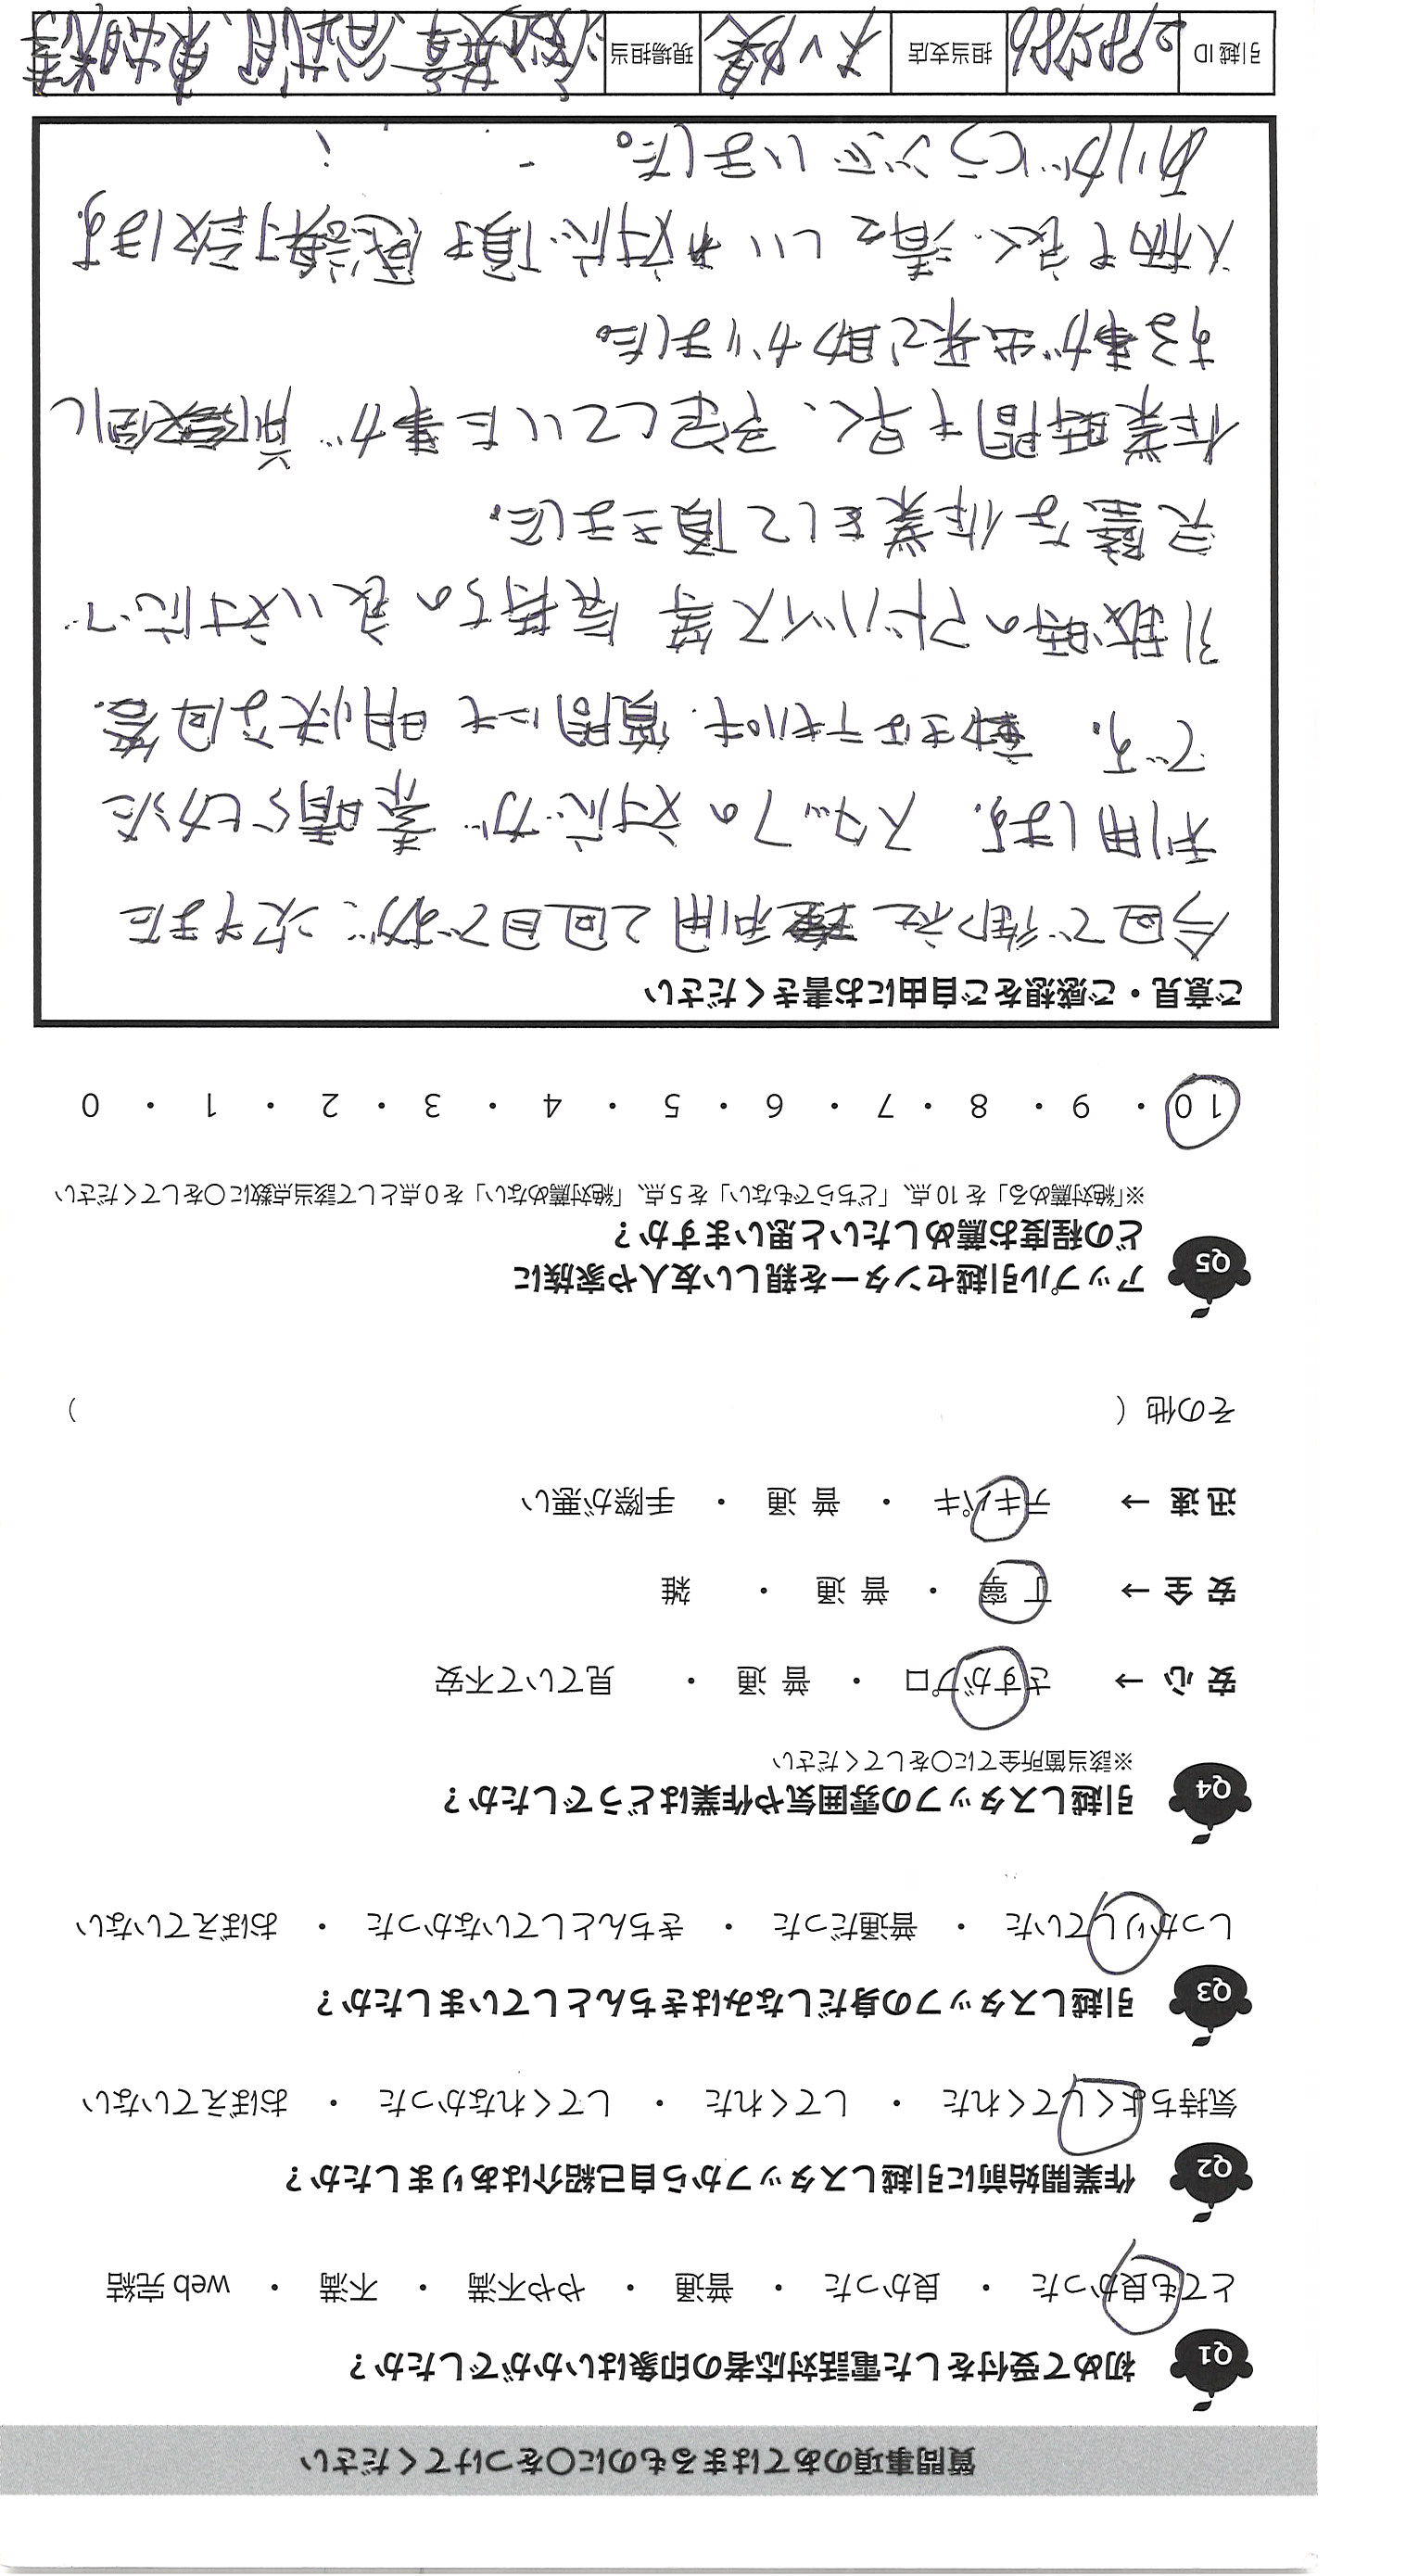 質問事項のあてはまるものに○をつけてください
Q1 初めて受付をした電話対応者の印象はいかがでしたか？
とても良かった ・ 良かった ・ 普通 ・ やや不満 ・ 不満 ・ web 完結
Q2 作業開始前に引越しスタッフから自己紹介はありましたか？
気持ちよくしてくれた ・ してくれた ・ してくれなかった ・ おぼえていない
Q3 引越しスタッフの身だしなみはきちんとしていましたか？
しっかりしていた ・ 普通だった ・ きちんとしていなかった ・ おぼえていない
Q4 引越しスタッフの雰囲気や作業はどうでしたか？
※該当箇所全てに○をしてください
安 心 → さすがプロ ・ 普 通 ・ 見ていて不安
安 全 → 丁 寧 ・ 普 通 ・ 雑
迅 速 → テキパキ ・ 普 通 ・ 手際が悪い
その他（ ）
Q5 アップル引越センターを親しい友人や家族に
どの程度お薦めしたいと思いますか？
※「絶対薦める」を 10 点、「どちらでもない」を 5 点、「絶対薦めない」を 0 点として該当点数に○をしてください
10 ・ 9 ・ 8 ・ 7 ・ 6 ・ 5 ・ 4 ・ 3 ・ 2 ・ 1 ・ 0
ご意見・ご感想をご自由にお書きください
今回で御社 利用2回目ですが、次もまた
利用します。スタッフの対応が素晴らしかった
です。動きはテキパキ、質問にも明快な回答、
引越時のアドバイス等 気持ちの良い対応で
完璧な作業をして頂きました。
作業時間も早く、予定していた事が 前倒し
する事が出来て助かりました。
人柄も良く、清々しい 対応頂き感謝致します
ありがとうございました。
引越 ID 担当支店 現場担当